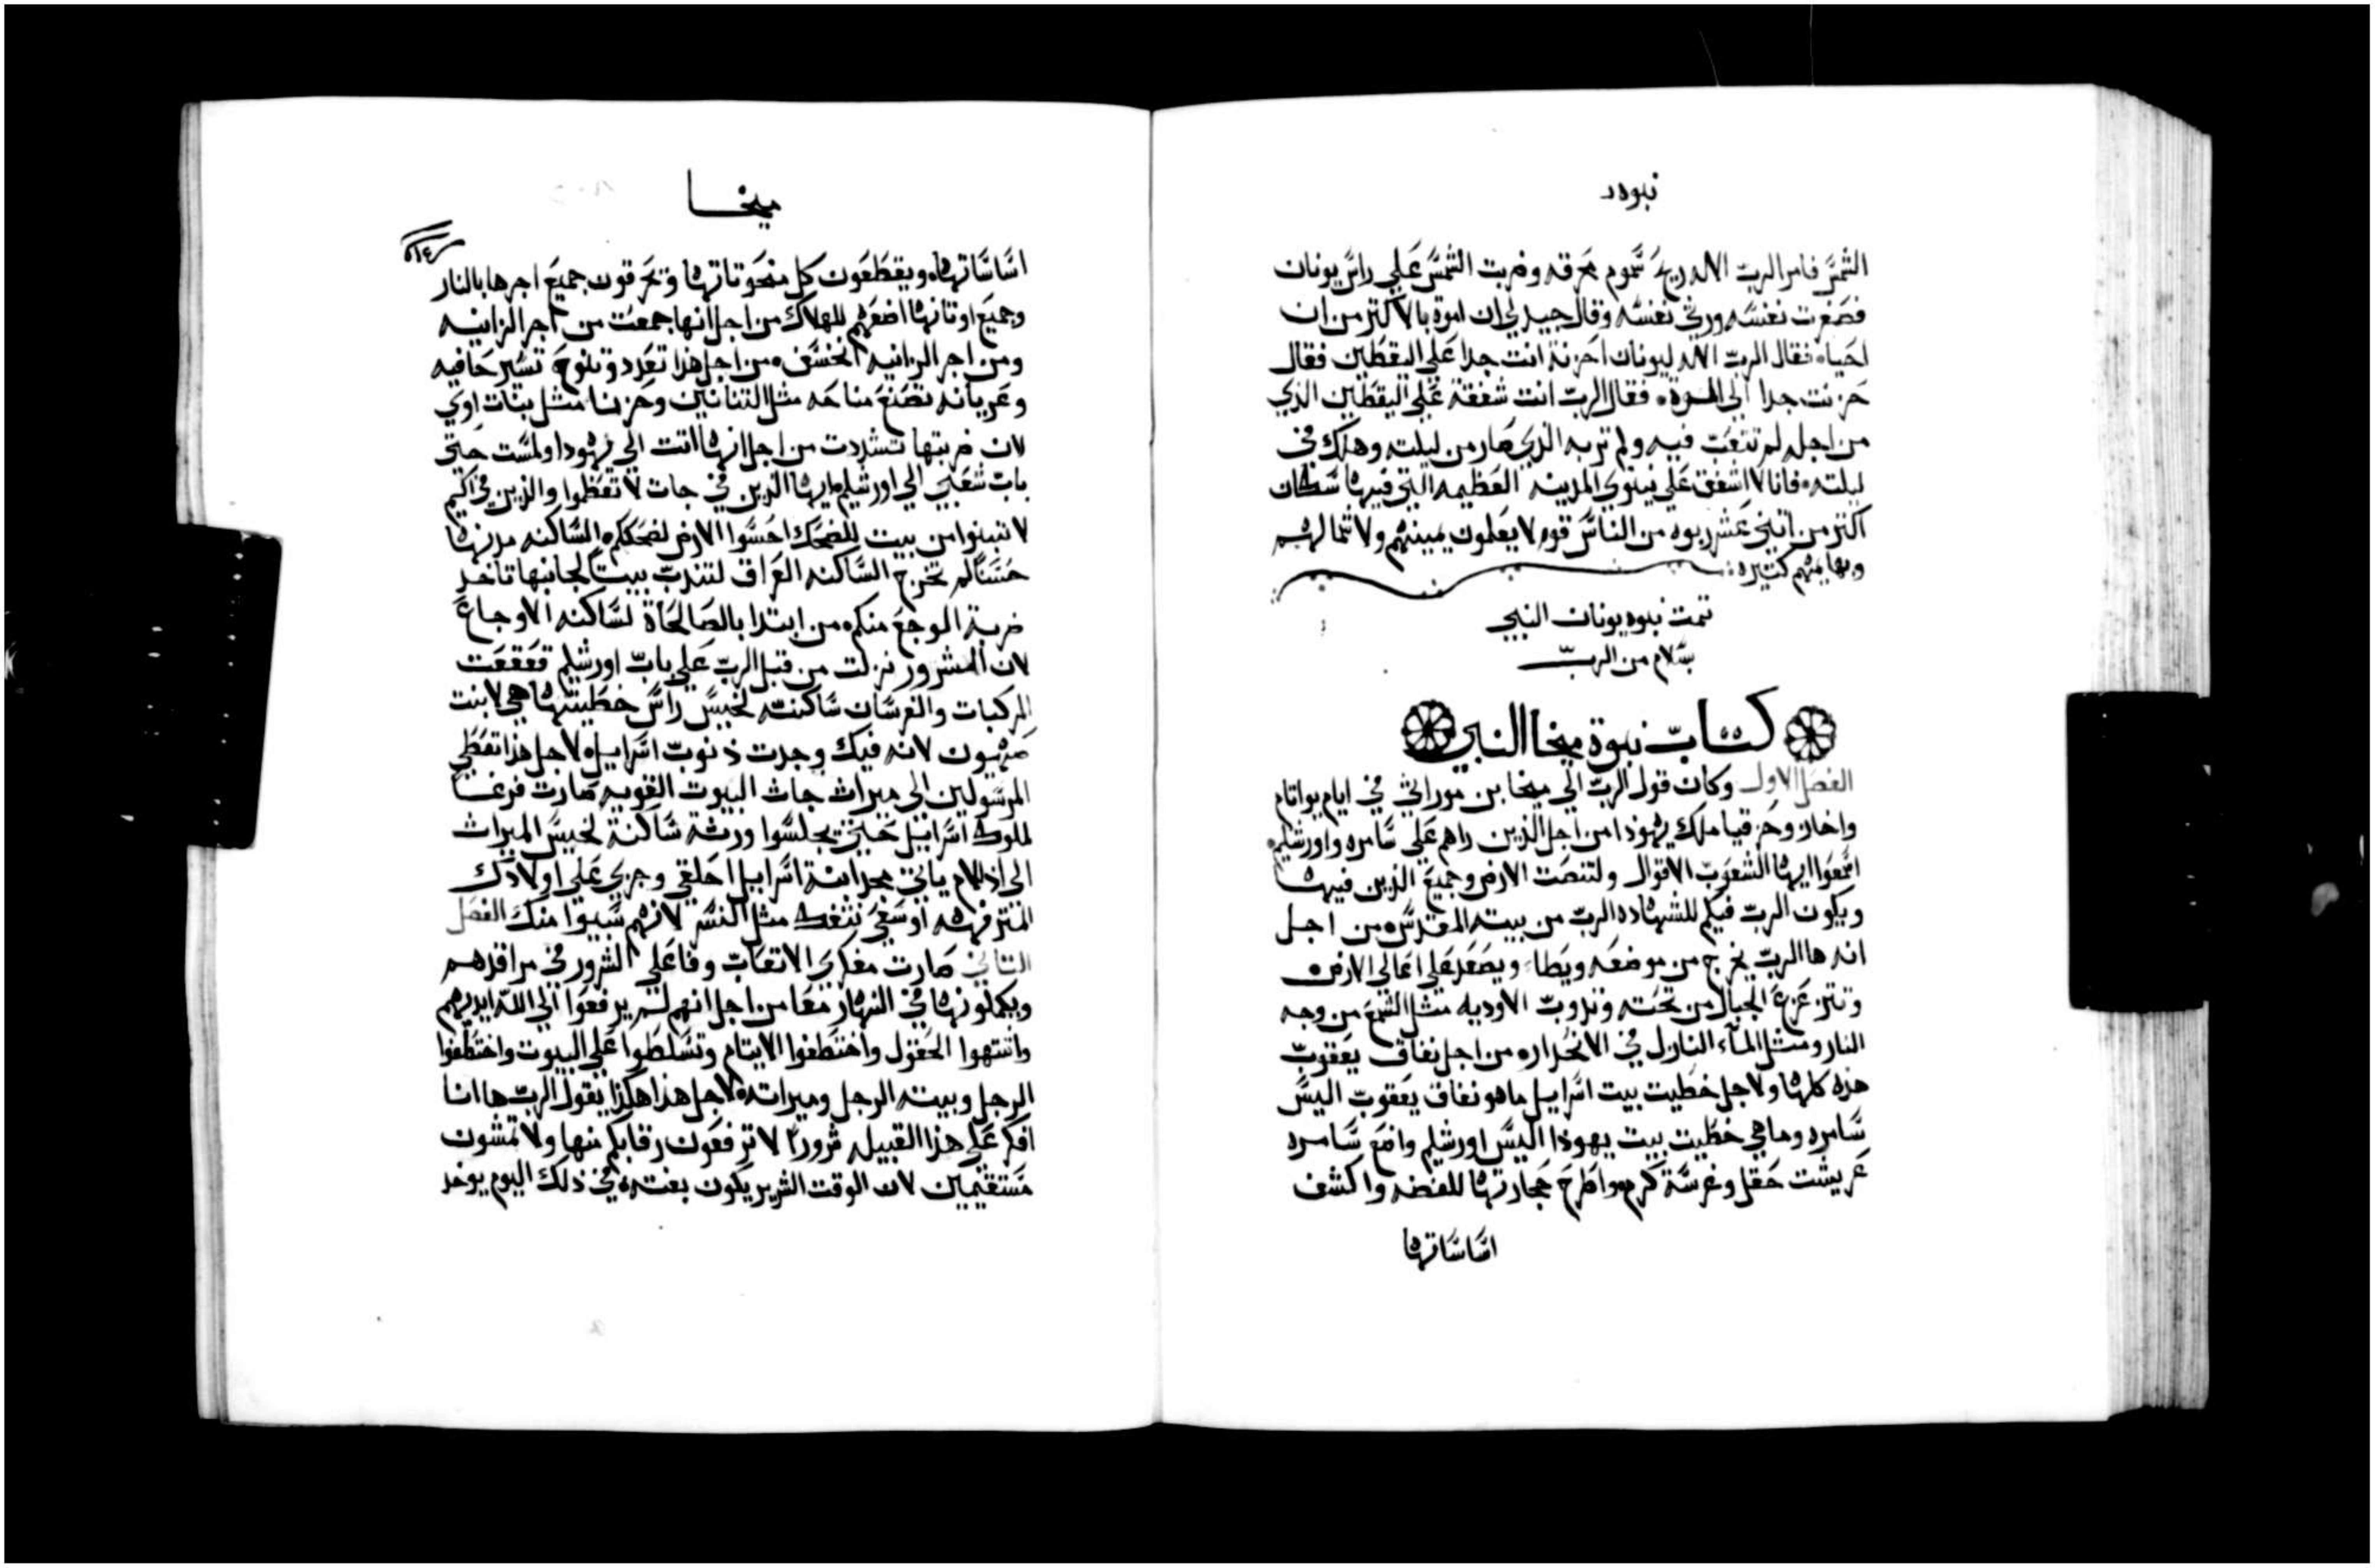 نبوه
الشمس فامر الرب الاله ريح سموم محرقه وضربت الشمس علي راس يونان
فصغرت نفسه ورني نفسه وقال جيد لي ان اموت بالاكثر من ان
احيا فقال الرب الاله ليونان احزنة انت جدا علي اليقطين فقال
حزنت جدا الي الموت فقال الرب انت شفقة علي اليقطين الذي
من اجله لم تتعب فيه ولم تربه الذي صار من ليلته وهلك في
ليلته فانا لا اشفق علي نينوي المدينه العظيمه التي فيها سكان
اكثر من اثني عشر ربوه من الناس قوم لا يعلمون يمينهم ولا شمالهم
وبهايمهم كثيره
تمت نبوه يونان النبي
بسلام من الرب
كتاب نبوة ميخا النبي
الفصل الاول وكان قول الرب الي ميخا بن موراثي في ايام يواتام
واخاز وحزقيا ملك يهودا من اجل الذين راهم علي سامره واورشليم
اسمعوا ايها الشعوب الاقوال ولتنصت الارض وجميع الذين فيها
ويكون الرب فيكم للشهاده الرب من بيته المقدس من اجل
انه ها الرب يخرج من موضعه ويطاء ويصعد علي اعالي الارض
وتتزعزع الجبال من تحته وتدوب الاوديه مثل الشمع من وجه
النار ومثل الماء النازل في الانحدار من اجل نفاق يعقوب
هذه كلها ولاجل خطيت بيت اسراييل ما هو نفاق يعقوب اليس
سامره وما هي خطيت بيت يهودا اليس اورشليم واضع سامره
عريشت حقل وغرسة كرم واطرح حجارتها للفضه واكشف
اساساتها
ميخا
اساساتها ويقطعون كل منحوتاتها وتحرقون جميع اجرها بالنار
وجميع اوثانها اضعهم للهلاك من اجل انها جمعت من اجر الزانيه
ومن اجر الزانيه انخسف من اجل هذا تعدد وتنوح تسير حافيه
وعريانه تصنع مناحه مثل التنانين وحزنا مثل بنات اوي
لان ضربتها تشددت من اجل انها اتت الي يهودا ولمست حتي
باب شعبي الي اورشليم ايها الذين في جاث لا تعظموا والذين في اكيم
لا تبنوا من بيت للضحك احسوا الارض لضحككم الساكنه مدنها
حسنا لم تخرج الساكنه العراق لتندب بيتا لجانبها تاخد
ضربة الوجع منكم من ابتدا بالصالحاة لساكنه الاوجاع
لان الشرور نزلت من قبل الرب علي باب اورشليم قعقعت
المركبات والفرسان ساكنته لخيس راس خطيتها هي لابنت
صهيون لانه فيك وجدت ذنوب اسراييل لاجل هذا تعطي
المرسولين الي ميراث جاث البيوت الغويه صارت فرغا
لملوك اسراييل حتي يجلسوا ورثة ساكنة لخيس الميراث
الي اذللام ياتي مجد ابنة اسراييل احلقي وجزي علي اولادك
المترفهه اوسعي نتفك مثل النسر لانهم سبيوا منك الفصل
الثاني صارت مفكري الاتعاب وفاعلي الشرور في مراقدهم
ويكملونها في النهار معا من اجل انهم لم يرفعوا الي الله ايديهم
واشتهوا الحقول واختطفوا الايتام وتسلطوا علي البيوت واختطفوا
الرجل وبيته الرجل وميراته لاجل هذا هكذا يقول الرب ها انا
افكر علي هذا القبيله شرورا لا ترفعون رقابكم منها ولا تمشون
مستقيمين لان الوقت الشرير يكون بغته في ذلك اليوم يوخد